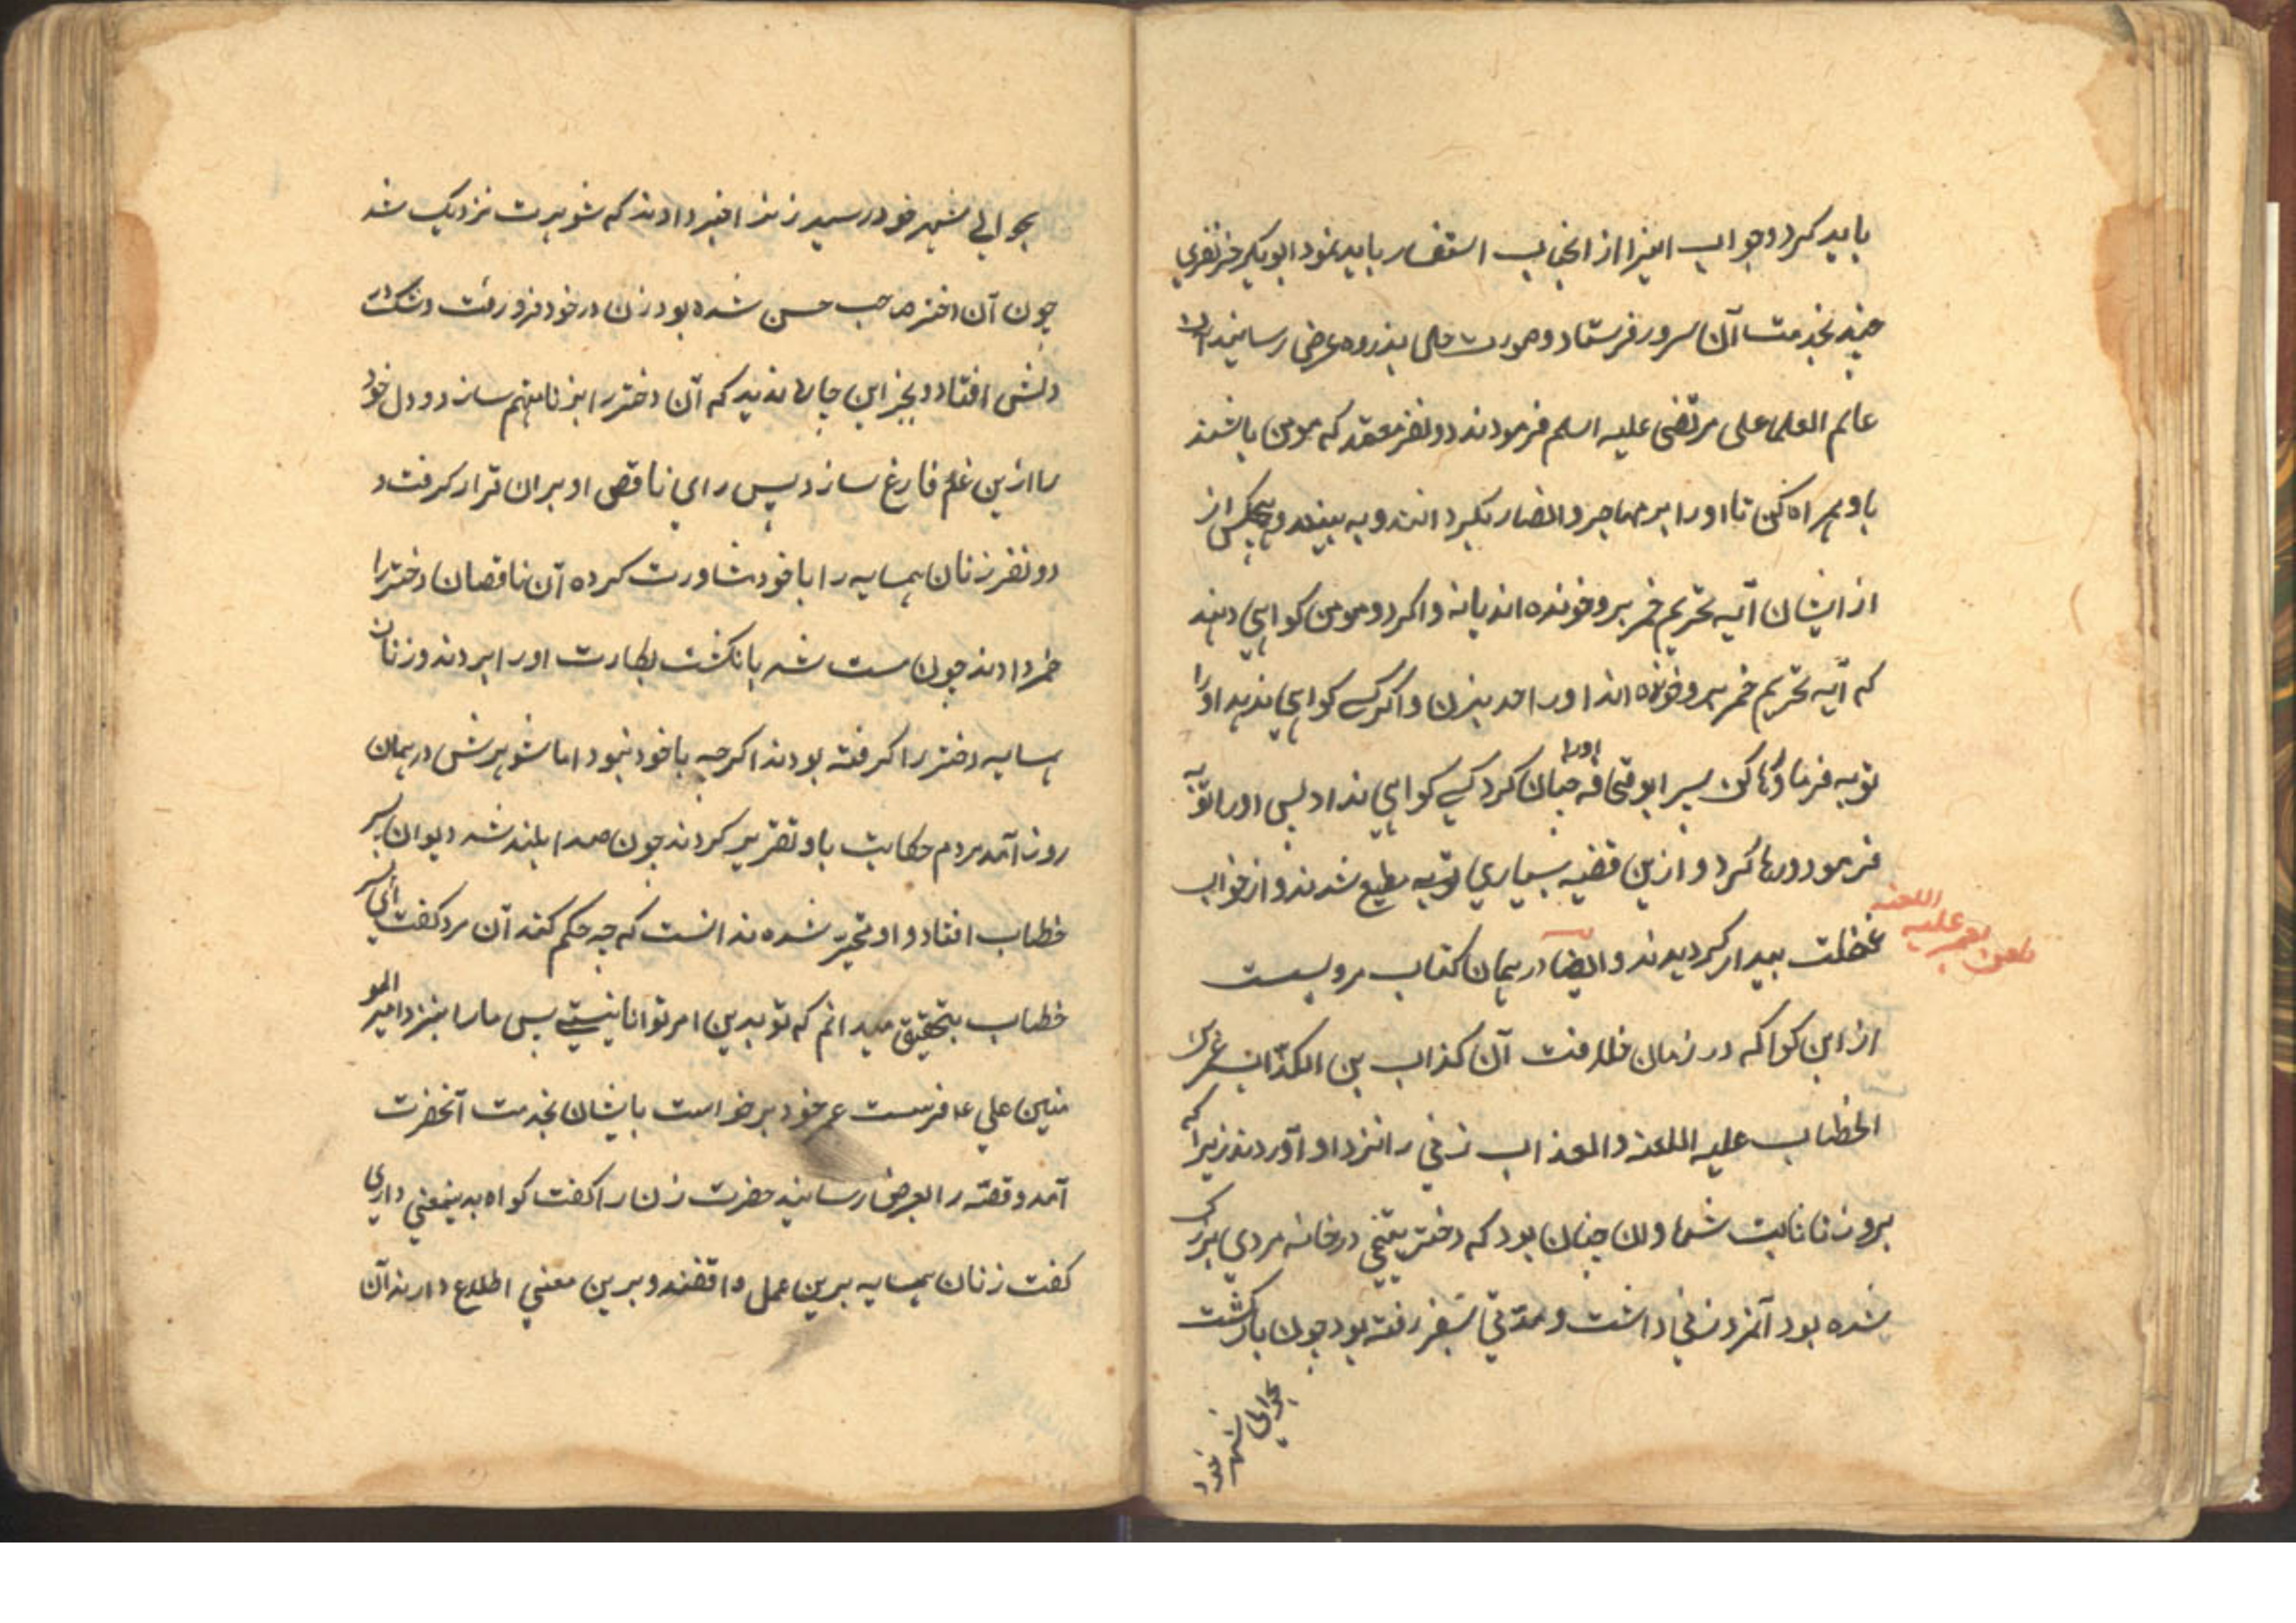 باید کرد و جواب اینرا از انجناب استفسار باید نمود ابوبکر خر نفری
چند بخدمت آن سرور فرستاد و صورت حال بذروه عرض رسانید آن
عالم العلما علی مرتضی علیه اسلم فرمودند دو نفر معتمد که مومن باشند
باو همراه کن تا اورا بر مهاجر و انصار بگرداند و به بینند و هیچکس از
از ایشان آیه تحریم خمر برو خونده اند یانه و اکر دو مومن کواهی دهند
که آیه تحریم خمر برو خونده اند اورا حد بزن و اکر کسی کواهی ندهد اورا
توبه فرما و رها کن پسر ابو قحافه چنان کرد کسی اورا کواهی نداد پس اورا توبه
فرمود و رها کرد و ازین قضیه بسیاری توبه مطیع شدند و از خواب
غفلت بیدار کردیدند و ایضا در همان کتاب مرویست
لعن بعمر علیه اللعنه
از ابن کوا که در زمان خلافت آن کذاب بن الکذاب عمر بن
الخطاب علیه اللعنه والعذاب زنی را نزد او آوردند زیرا که
برو زنا ثابت شد و ان چنان بود که دختر یتیمی در خانه مردی بزرک
شده بود آنمرد زنی داشت و مدتی بسفر رفته بود چون بازکشت
بحوالی شهر خود
بحوالی شهر خود رسید زنرا خبر دادند که شوهرت نزدیک شد
چون آن دختر صاحب حسن شده بود زن در خود فرو رفت و شک در
دلش افتاد و بجز این چاره ندید که آن دختر را بزنا متهم سازد و دل خود
را ازین غم فارغ سازد پس رای ناقص او بران قرار کرفت و
دو نفر زنان همسایه را با خود مشاورت کرده آن ناقصان دختر را
خمر دادند چون مست شد بانکشت بکارت اورا بردند و زنان
همسایه دختر را کرفته بودند اکرچه با خود نبود اما شوهرش در همان
روز آمد مردم حکایت باو تقریر کردند چون صدا بلند شد دیوان پسر
خطاب افتاد و او متحیر شده ندانست که چه حکم کند آن مرد کفت ای پسر
خطاب بتحقیق میدانم که تو بدین امر توانا نیستی پس ما را بنزد امیر المو
منین علی ع فرست عمر خود برخواست بایشان بخدمت آنحضرت
آمد و قصه را بعرض رسانید حضرت زن را کفت کواه بدینمعنی داری
کفت زنان همسایه برین عمل واقفند و برین معنی اطلاع دارند آن